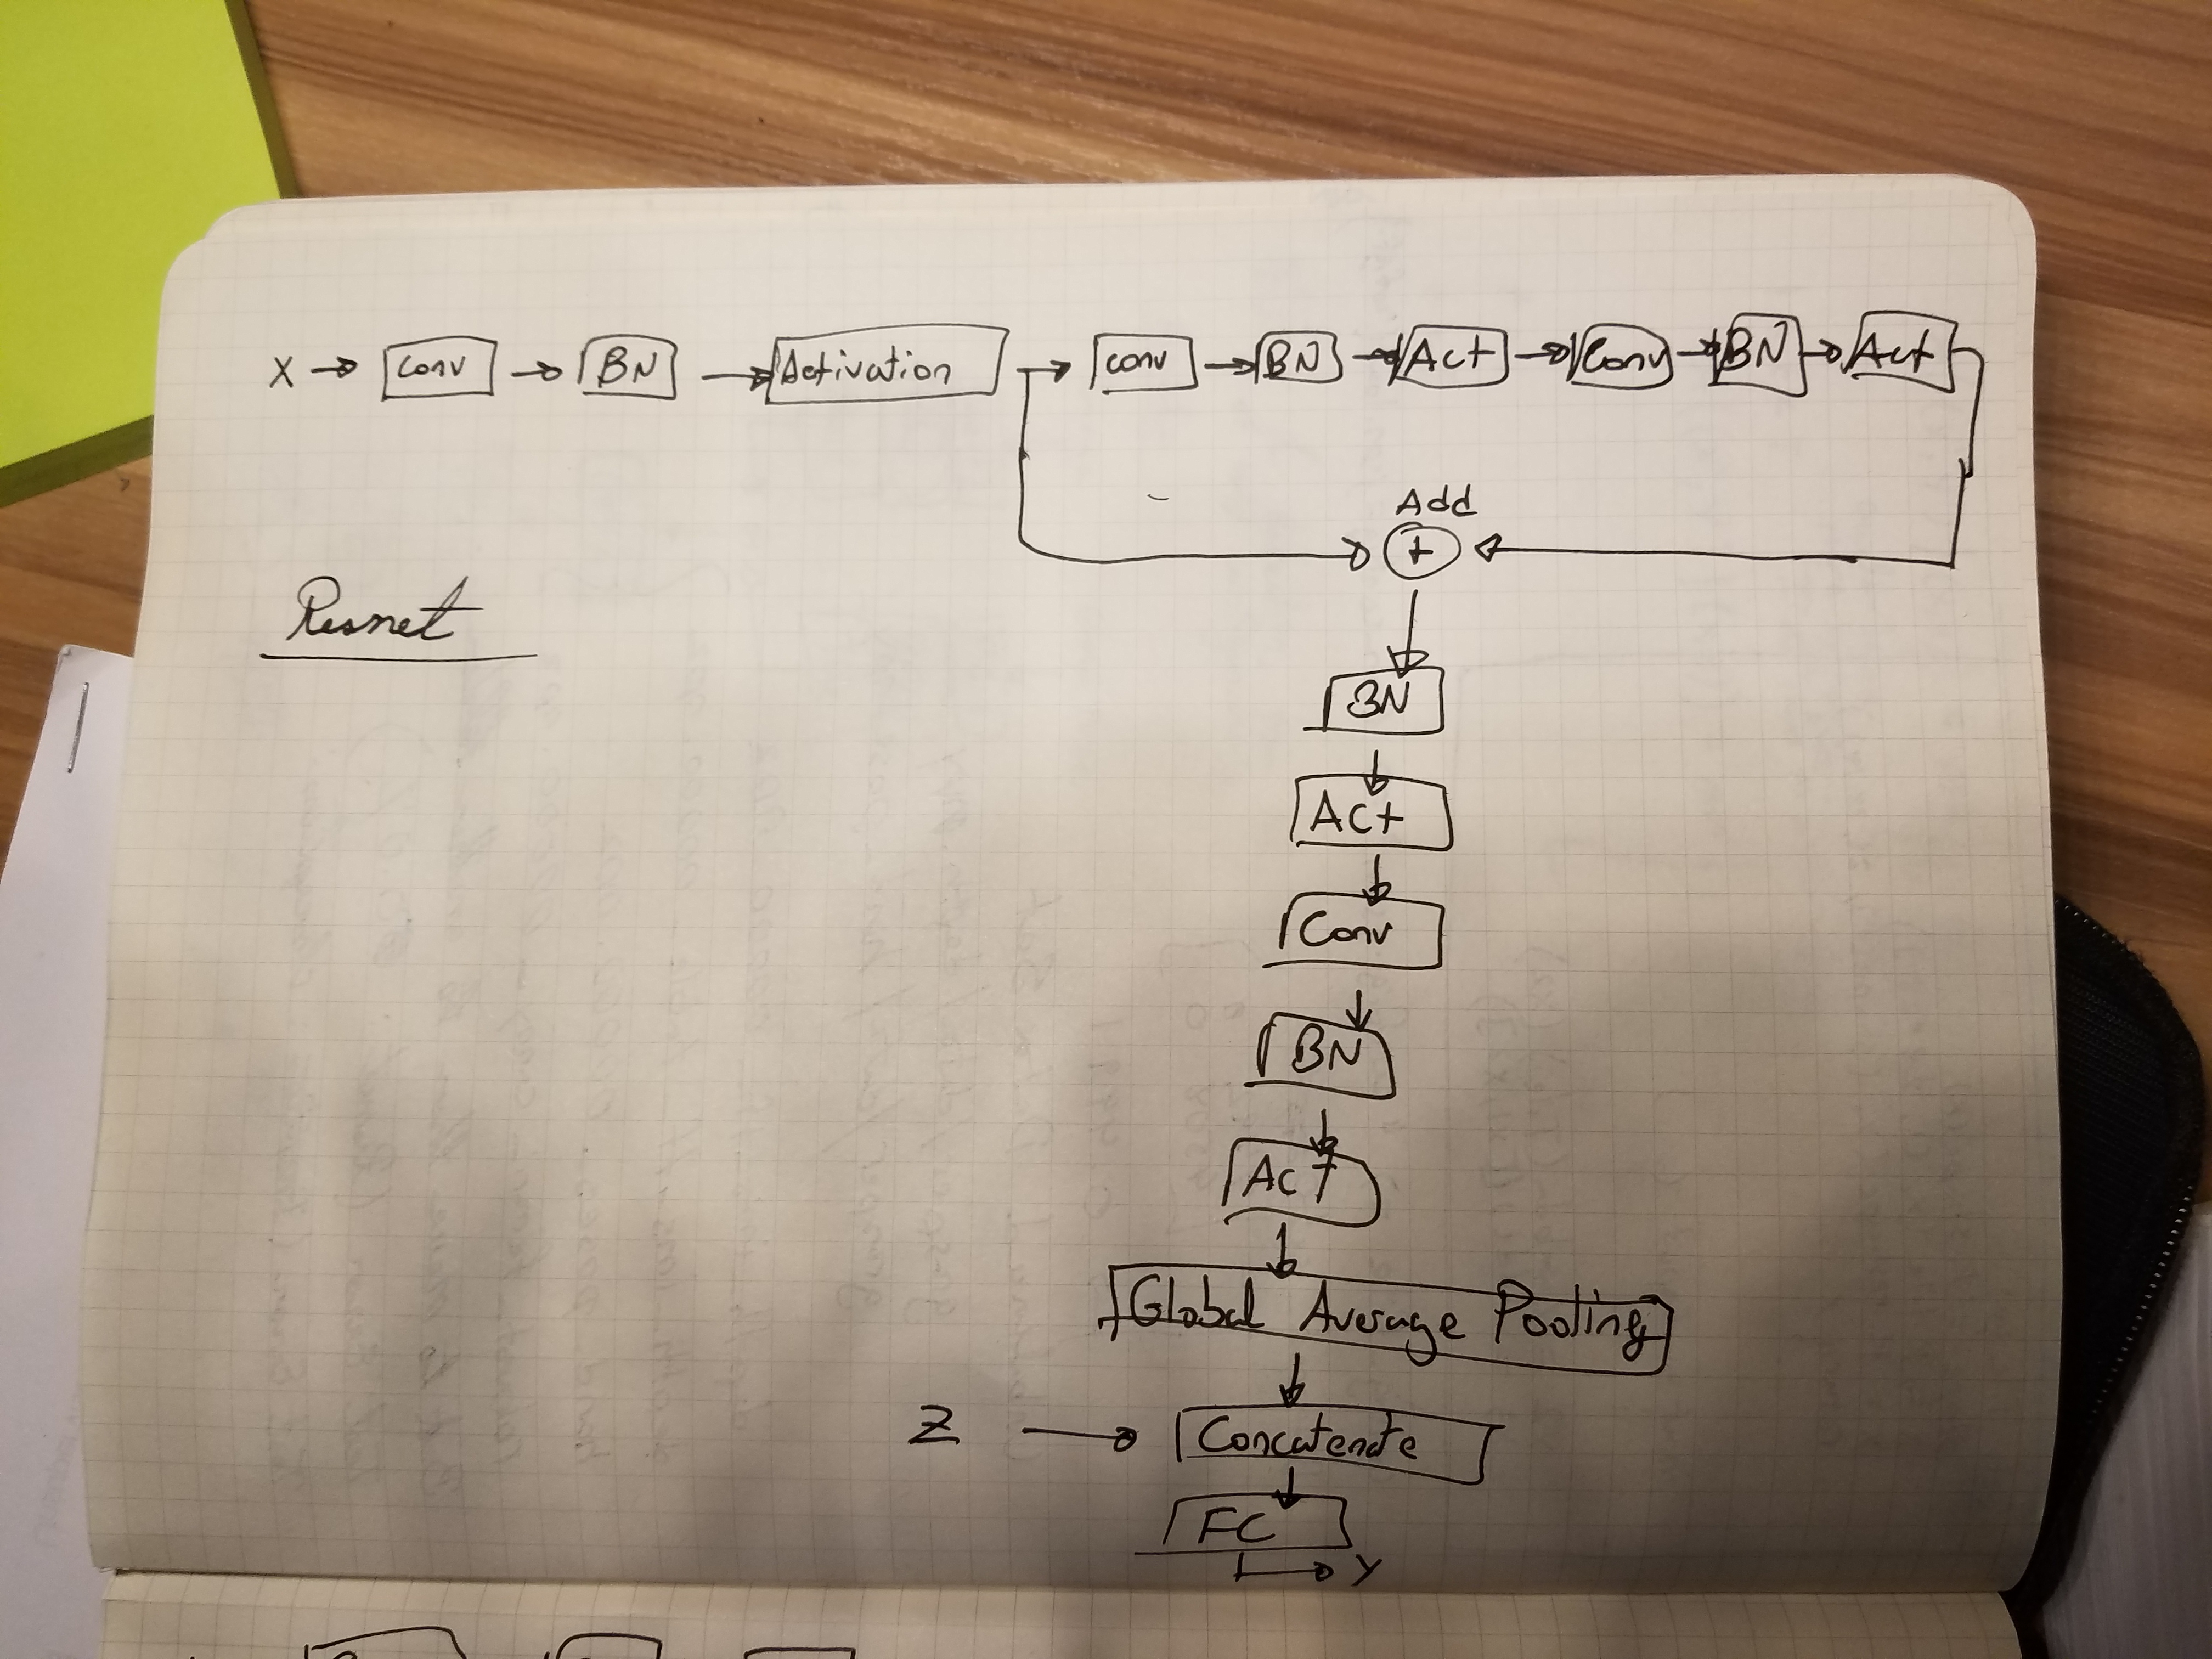 X → Conv → BN → Activation → conv → BN → Act → Conv → BN → Act
Add
+
Resnet
BN
Act
Conv
BN
Act
Global Average Pooling
Z → Concatenate
FC
→ Y